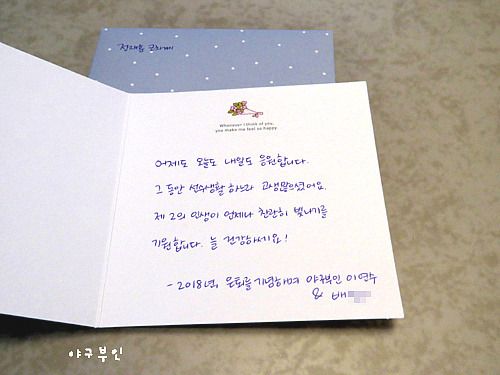 정재훈 코치께
Whenever I think of you,
you make me feel so happy
어제도 오늘도 내일도 응원합니다.
그동안 선수생활 하느라 고생많으셨어요.
제 2의 인생이 언제나 찬란히 빛나기를
기원합니다. 늘 건강하세요!
- 2018년, 은퇴를 기념하며 야구부인 이연수
& 배
야구부인